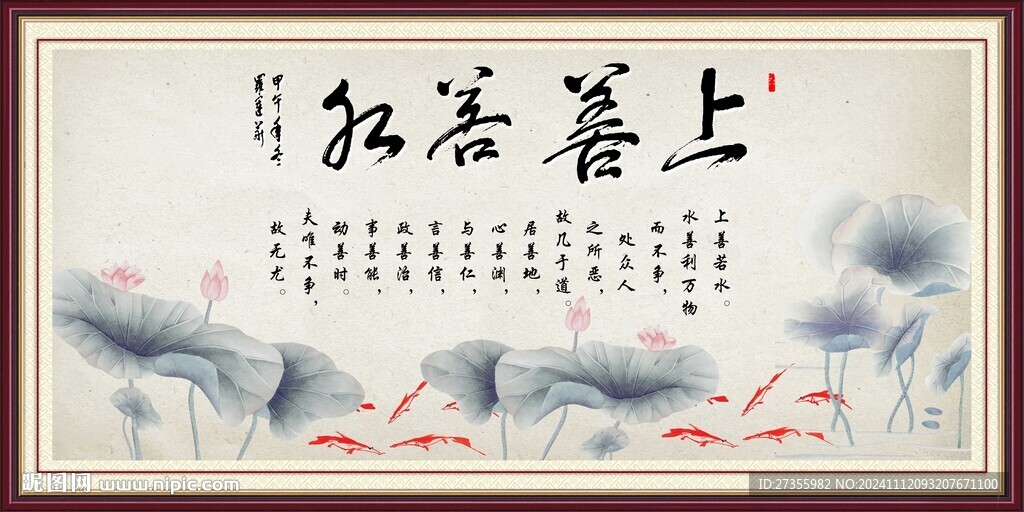 上善若水
上善若水。
水善利万物
而不争，
处众人
之所恶，
故几于道。
居善地，
心善渊，
与善仁，
言善信，
政善治，
事善能，
动善时。
夫唯不争，
故无尤。
甲午年冬
昵图网 www.nipic.com
ID:27355982 NO:20241112093207671100